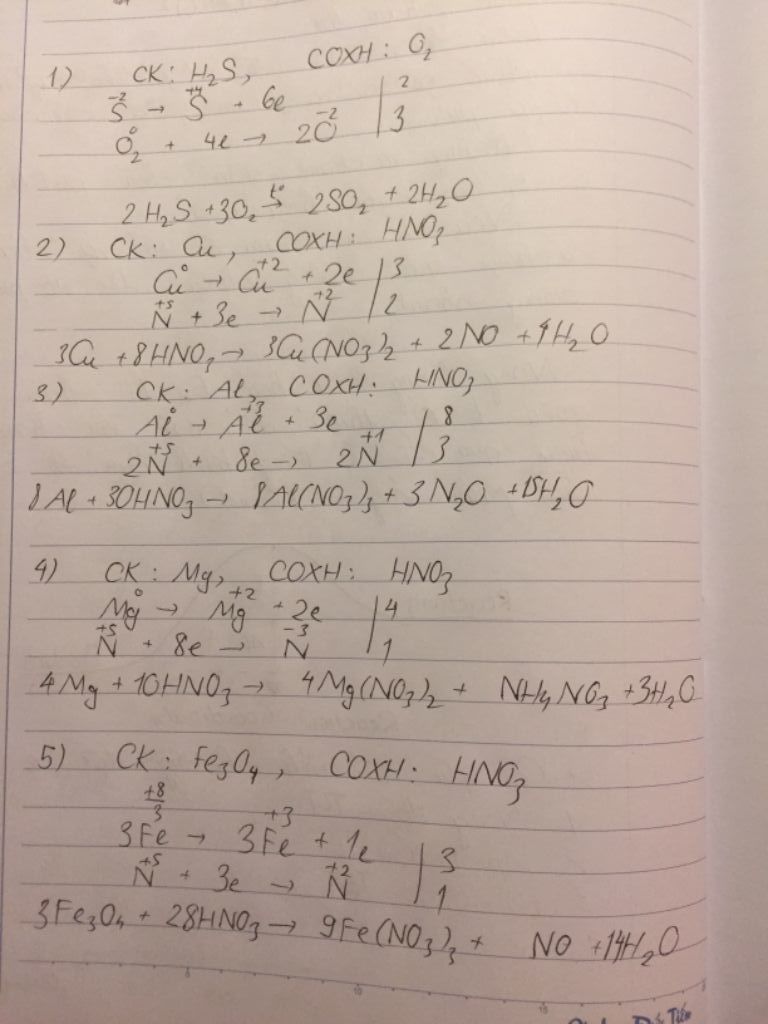 1) CK: H₂S, COXH: O₂
S⁻² → S⁺⁴ + 6e | 2
O₂⁰ + 4e → 2O⁻² | 3
2H₂S + 3O₂ →(t°) 2SO₂ + 2H₂O
2) CK: Cu, COXH: HNO₃
Cu⁰ → Cu⁺² + 2e | 3
N⁺⁵ + 3e → N⁺² | 2
3Cu + 8HNO₃ → 3Cu(NO₃)₂ + 2NO + 4H₂O
3) CK: Al, COXH: HNO₃
Al⁰ → Al⁺³ + 3e | 8
2N⁺⁵ + 8e → 2N⁺¹ | 3
8Al + 30HNO₃ → 8Al(NO₃)₃ + 3N₂O + 15H₂O
4) CK: Mg, COXH: HNO₃
Mg⁰ → Mg⁺² + 2e | 4
N⁺⁵ + 8e → N⁻³ | 1
4Mg + 10HNO₃ → 4Mg(NO₃)₂ + NH₄NO₃ + 3H₂O
5) CK: Fe₃O₄, COXH: HNO₃
3Fe⁺⁸/³ → 3Fe⁺³ + 1e | 3
N⁺⁵ + 3e → N⁺² | 1
3Fe₃O₄ + 28HNO₃ → 9Fe(NO₃)₃ + NO + 14H₂O